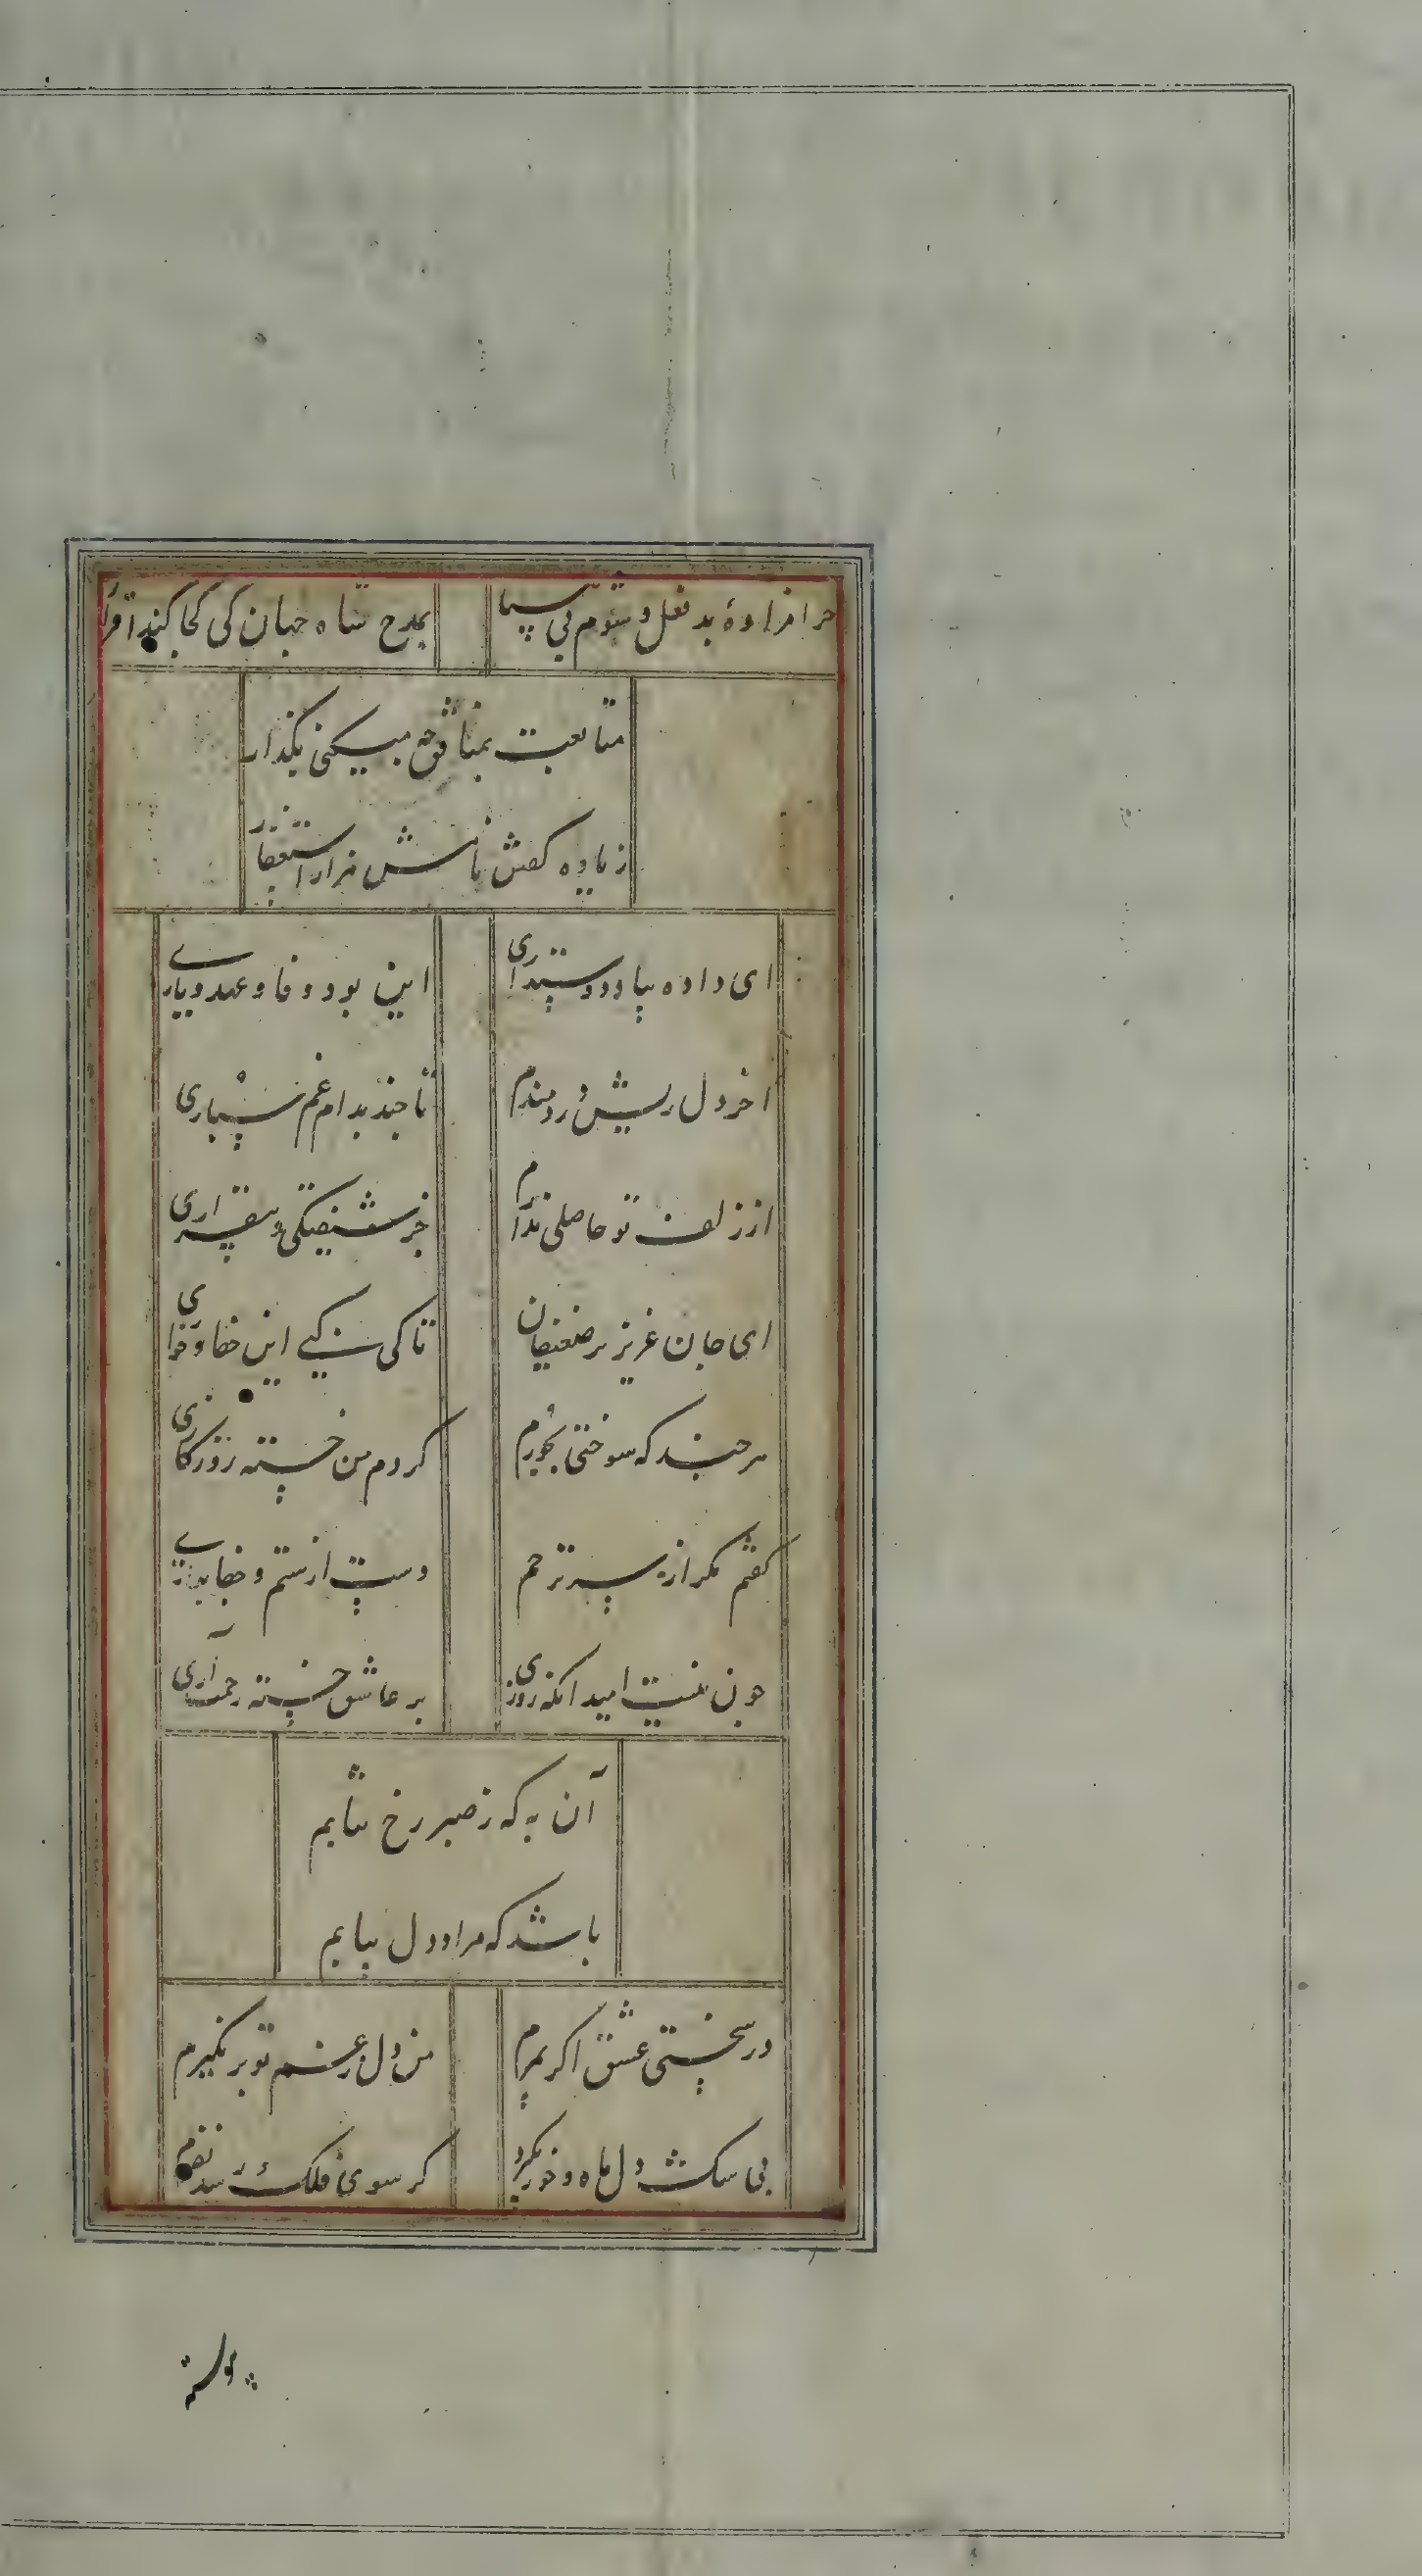 حرامزادهٔ بدفعل و شوم بی سپاس
بمدح شاه جهان کی کجا کند اقرار
متابعت بمنافق چه میکنی بگذار
زیاده کفش نافش هزار استغفار
ای داده بیاد دوستداری
این بود وفا و عهد و یاری
اخر دل ریش دردمندم
تا چند بدام غم سپاری
از زلف تو حاصلی ندارم
جز شیفتگی و بیقراری
ای جان عزیز بر ضعیفان
تا کی کنی این جفا و خواری
هر چند که سوختی بجورم
کردم من خسته
گفتم مگر از سر ترحم
دست از ستم و جفا بداری
چون نیست امید انکه روزی
بر عاشق خسته رحمت آری
آن به که ز صبر رخ نتابم
باشد که مراد دل بیابم
در سختی عشق اگر بمیرم
من دل ز غم تو بر نگیرم
بی شک دل ماه و خور بگیرد
گر سوی فلک رسد نفیرم